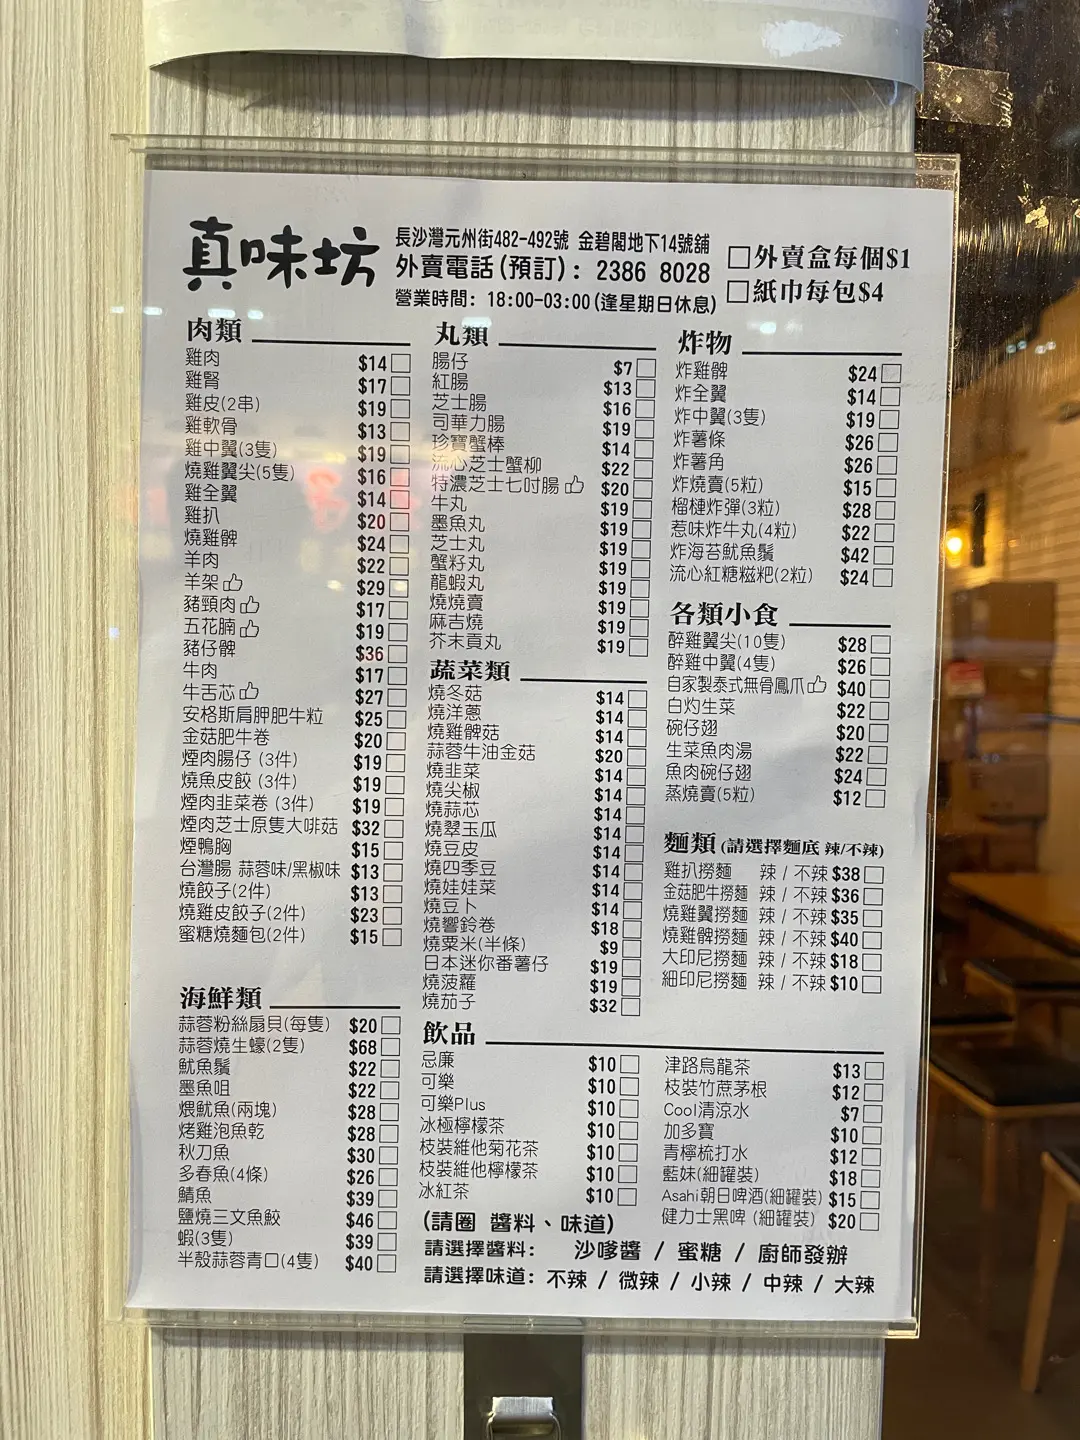 真味坊
長沙灣元州街482-492號 金碧閣地下14號舖
外賣電話(預訂): 2386 8028
營業時間: 18:00-03:00(逢星期日休息)
□外賣盒每個$1
□紙巾每包$4
肉類
雞肉 $14
雞腎 $17
雞皮(2串) $19
雞軟骨 $13
雞中翼(3隻) $19
燒雞翼尖(5隻) $16
雞全翼 $14
雞扒 $20
燒雞髀 $24
羊肉 $22
羊架 $29
豬頸肉 $17
五花腩 $19
豬仔髀 $36
牛肉 $17
牛舌芯 $27
安格斯肩胛肥牛粒 $25
金菇肥牛卷 $20
煙肉腸仔 (3件) $19
燒魚皮餃 (3件) $19
煙肉韭菜卷 (3件) $19
煙肉芝士原隻大啡菇 $32
煙鴨胸 $15
台灣腸 蒜蓉味/黑椒味 $13
燒餃子(2件) $13
燒雞皮餃子(2件) $23
蜜糖燒麵包(2件) $15
海鮮類
蒜蓉粉絲扇貝(每隻) $20
蒜蓉燒生蠔(2隻) $68
魷魚鬚 $22
墨魚咀 $22
煨魷魚(兩塊) $28
烤雞泡魚乾 $28
秋刀魚 $30
多春魚(4條) $26
鯖魚 $39
鹽燒三文魚鮫 $46
蝦(3隻) $39
半殼蒜蓉青口(4隻) $40
丸類
腸仔 $7
紅腸 $13
芝士腸 $16
司華力腸 $19
珍寶蟹棒 $14
流心芝士蟹柳 $22
特濃芝士七吋腸 $20
牛丸 $19
墨魚丸 $19
芝士丸 $19
蟹籽丸 $19
龍蝦丸 $19
燒燒賣 $19
麻吉燒 $19
芥末貢丸 $19
蔬菜類
燒冬菇 $14
燒洋蔥 $14
燒雞髀菇 $14
蒜蓉牛油金菇 $20
燒韭菜 $14
燒尖椒 $14
燒蒜芯 $14
燒翠玉瓜 $14
燒豆皮 $14
燒四季豆 $14
燒娃娃菜 $14
燒豆卜 $14
燒響鈴卷 $18
燒粟米(半條) $9
日本迷你番薯仔 $19
燒菠蘿 $19
燒茄子 $32
炸物
炸雞髀 $24
炸全翼 $14
炸中翼(3隻) $19
炸薯條 $26
炸薯角 $26
炸燒賣(5粒) $15
榴槤炸彈(3粒) $28
惹味炸牛丸(4粒) $22
炸海苔魷魚鬚 $42
流心紅糖糍粑(2粒) $24
各類小食
醉雞翼尖(10隻) $28
醉雞中翼(4隻) $26
自家製泰式無骨鳳爪 $40
白灼生菜 $22
碗仔翅 $20
生菜魚肉湯 $22
魚肉碗仔翅 $24
蒸燒賣(5粒) $12
麵類 (請選擇麵底 辣/不辣)
雞扒撈麵 辣 / 不辣 $38
金菇肥牛撈麵 辣 / 不辣 $36
燒雞翼撈麵 辣 / 不辣 $35
燒雞髀撈麵 辣 / 不辣 $40
大印尼撈麵 辣 / 不辣 $18
細印尼撈麵 辣 / 不辣 $10
飲品
忌廉 $10
可樂 $10
可樂Plus $10
冰極檸檬茶 $10
枝裝維他菊花茶 $10
枝裝維他檸檬茶 $10
冰紅茶 $10
津路烏龍茶 $13
枝裝竹蔗茅根 $12
Cool清涼水 $7
加多寶 $10
青檸梳打水 $12
藍妹(細罐裝) $18
Asahi朝日啤酒(細罐裝) $15
健力士黑啤 (細罐裝) $20
(請圈 醬料、味道)
請選擇醬料: 沙嗲醬 / 蜜糖 / 廚師發辦
請選擇味道: 不辣 / 微辣 / 小辣 / 中辣 / 大辣